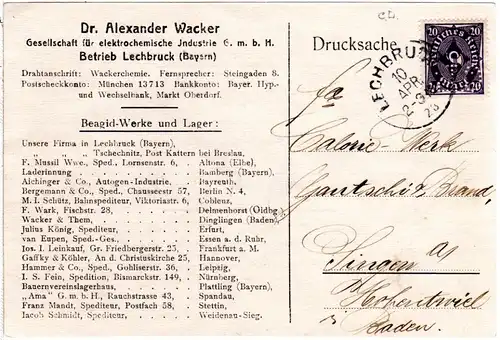 Dr. Alexander Wacker
Gesellschaft für elektrochemische Jndustrie G. m. b. H.
Betrieb Lechbruck (Bayern)
Drahtanschrift: Wackerchemie. Fernsprecher: Steingaden 8.
Postscheckkonto: München 13713 Bankkonto: Bayer. Hyp.-
und Wechselbank, Markt Oberdorf.
Beagid-Werke und Lager:
Unsere Firma in Lechbruck (Bayern),
„ „ „ Tschechnitz, Post Kattern bei Breslau,
F. Mussil Wwe., Sped., Lornsenstr. 6, . Altona (Elbe),
Laderinnung . . . . . . Bamberg (Bayern),
Aichinger & Co., Autogen-Industrie, . Bayreuth,
Bergemann & Co., Sped., Chausseestr. 57, Berlin N. 4,
M. I. Schütz, Bahnspediteur, Viktoriastr. 6, Coblenz,
F. Wark, Fischstr. 28, . . . . Delmenhorst (Oldbg.)
Wacker & Them, . . . . . Dinglingen (Baden),
Julius König, Spediteur, . . . . Erfurt,
van Eupen, Sped.-Ges., . . . . Essen a. d. Ruhr,
Jos. I. Leinkauf, Gr. Friedbergerstr. 23, . Frankfurt a. M.
Gaffky & Köhler, An d. Christuskirche 25, Hannover,
Hammer & Co., Sped., Gohliserstr. 36, . Leipzig,
I. S. Fein, Spedition, Bismarckstr. 149, . Nürnberg,
Bauernvereinslagerhaus, . . . . Plattling (Bayern),
„Ama" G. m. b. H., Rauchstrasse 43, . . Spandau,
Franz Mandt, Spediteur, Postfach 58, . Stettin,
Iacob Schmidt, Spediteur, . . . . Weidenau-Sieg.
Drucksache
Deutsches Reich
20 20
20 20
LECHBRUCK
10
APR.
2-3
23
Fa
Calorie-Werk
Gautschi & Brand,
Singen a/
Hohentwiel
Baden.